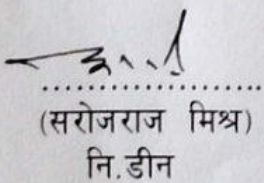 (सरोजराज मिश्र)
नि.डीन